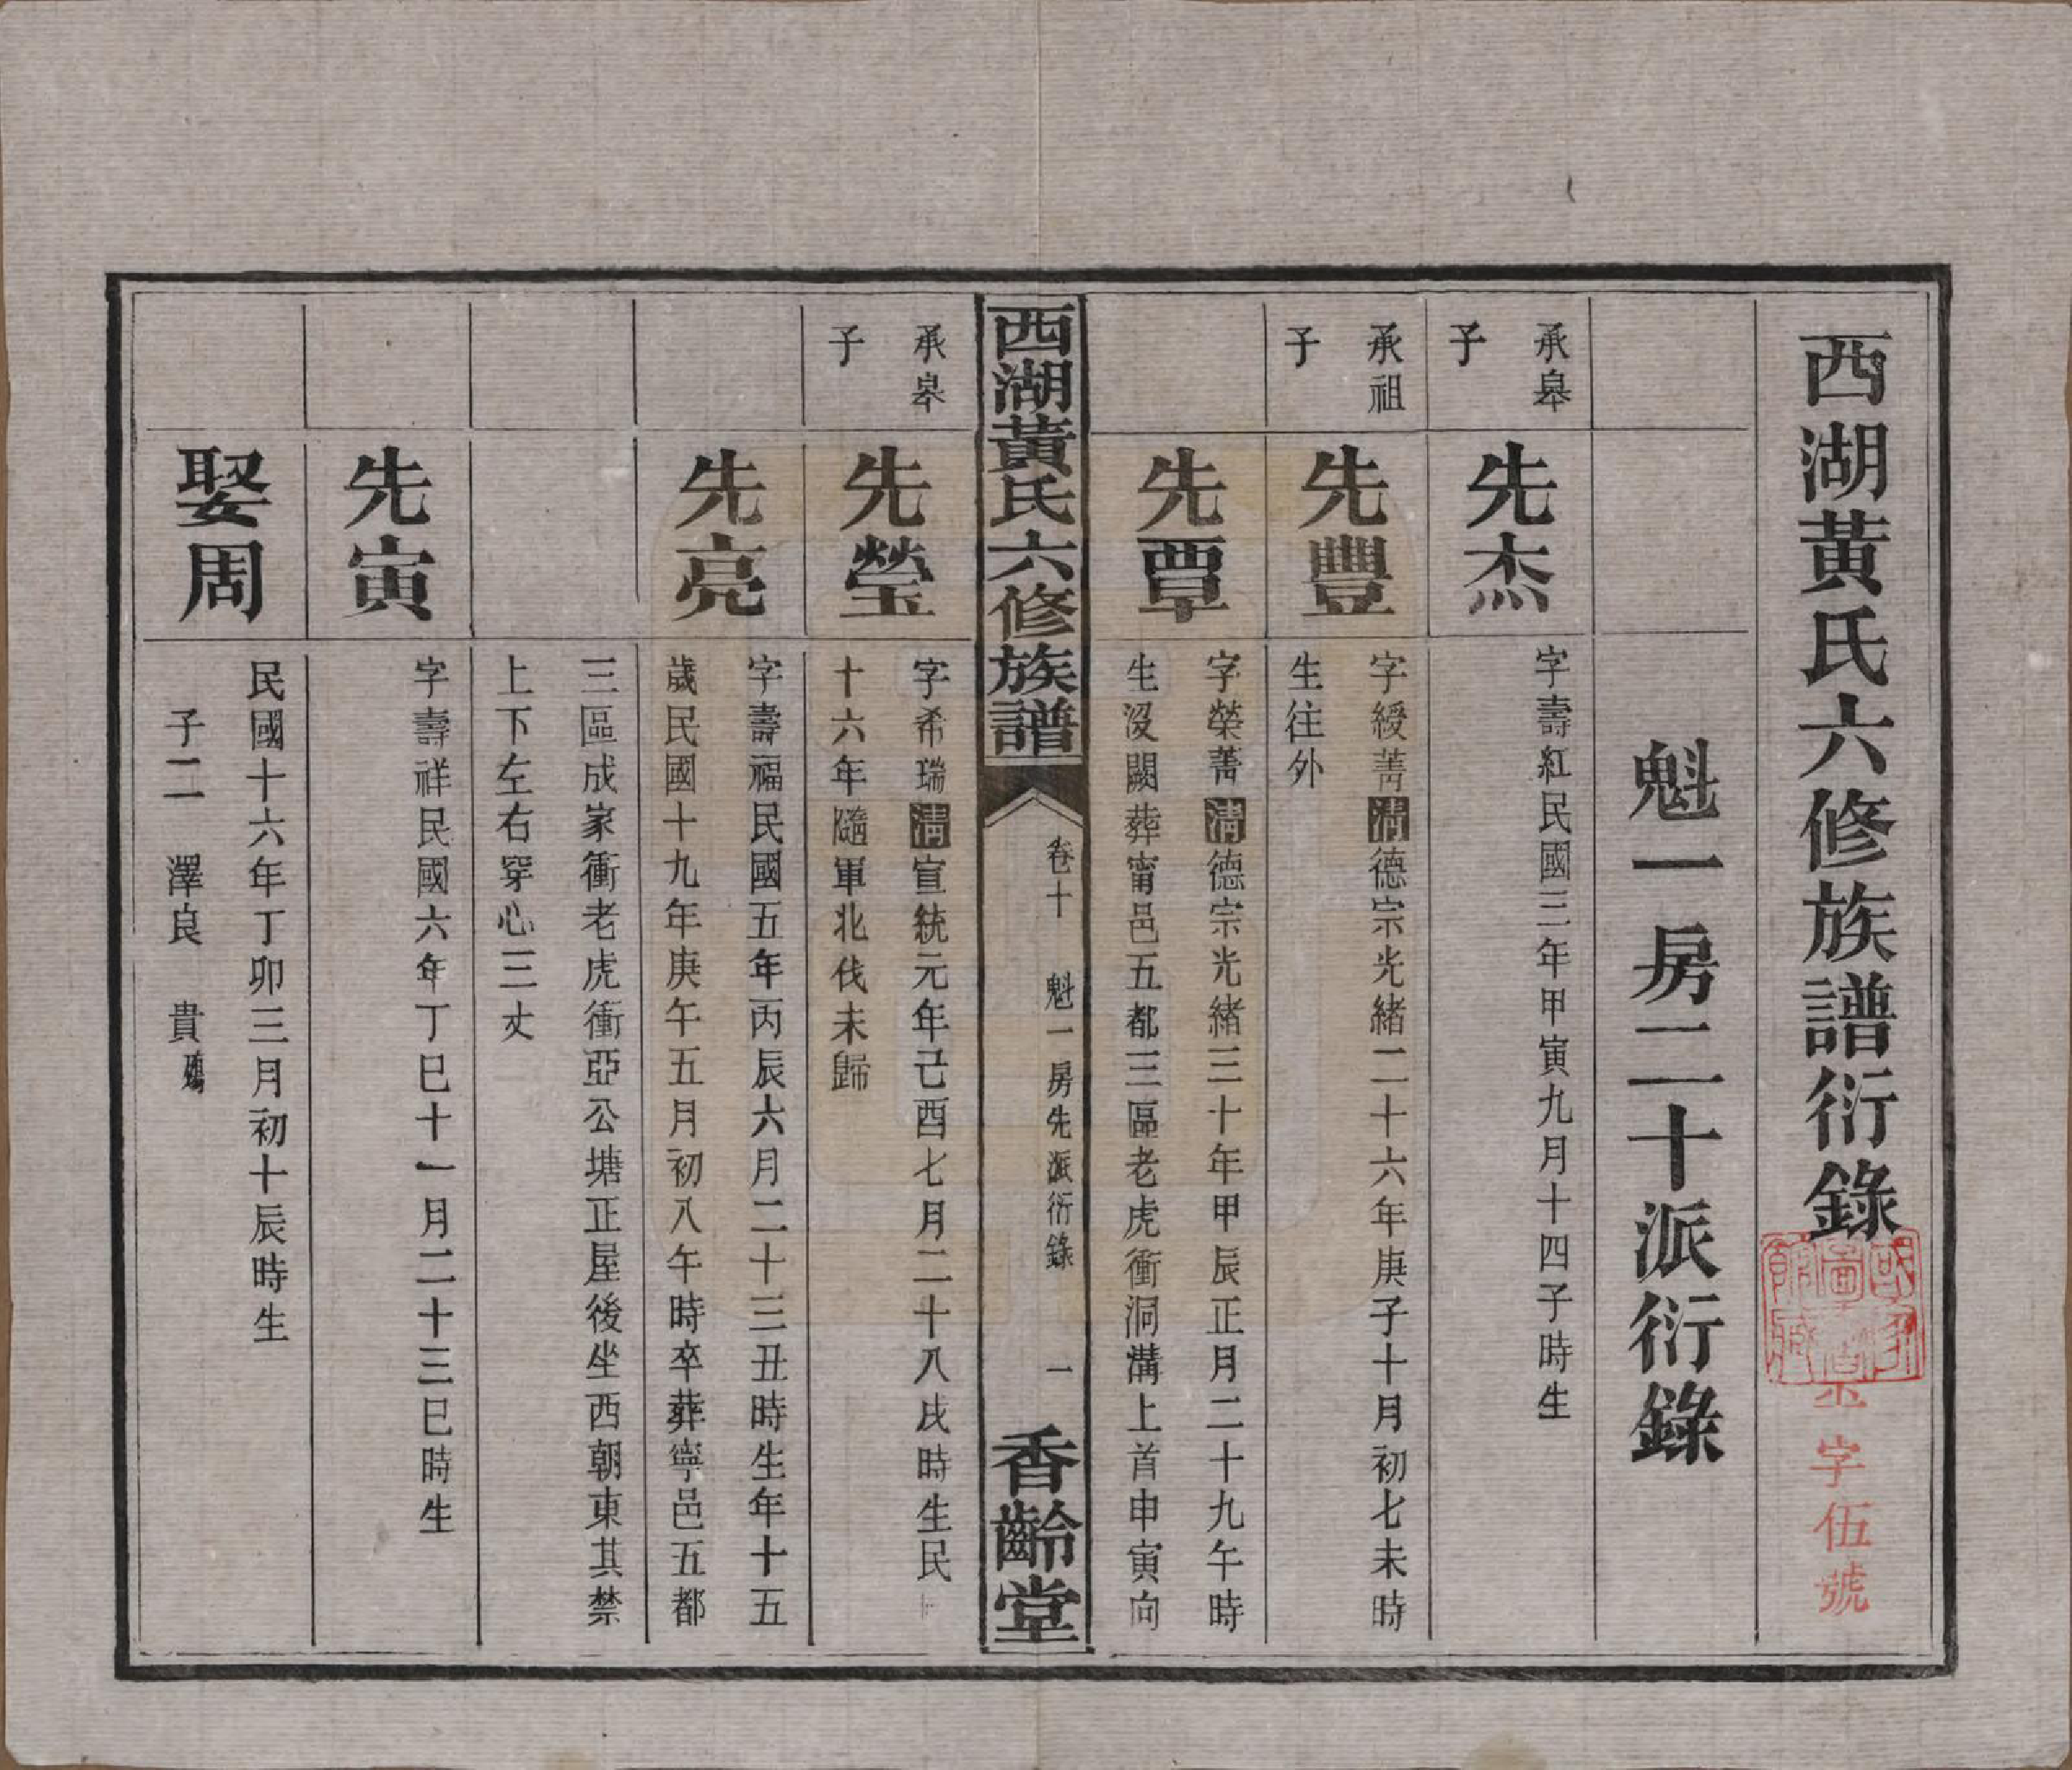 西湖黃氏六修族譜衍錄
國家圖書館藏
字伍號
魁一房二十派衍錄
承皋
子
先杰
字壽紅民國三年甲寅九月十四子時生
承祖
子
先豐
字綬菁清德宗光緒二十六年庚子十月初七未時
生往外
先覃
字榮菁清德宗光緒三十年甲辰正月二十九午時
生沒闕葬甯邑五都三區老虎衝洞溝上首申寅向
西湖黃氏六修族譜
卷十
魁一房先派衍錄
一
香齡堂
承皋
子
先瑩
字希瑞清宣統元年己酉七月二十八戌時生民
十六年隨軍北伐未歸
先亮
字壽福民國五年丙辰六月二十三丑時生年十五
歲民國十九年庚午五月初八午時卒葬寧邑五都
三區成家衝老虎衝亞公塘正屋後坐西朝東其禁
上下左右穿心三丈
先寅
字壽祥民國六年丁巳十一月二十三巳時生
娶周
民國十六年丁卯三月初十辰時生
子二 澤良 貴